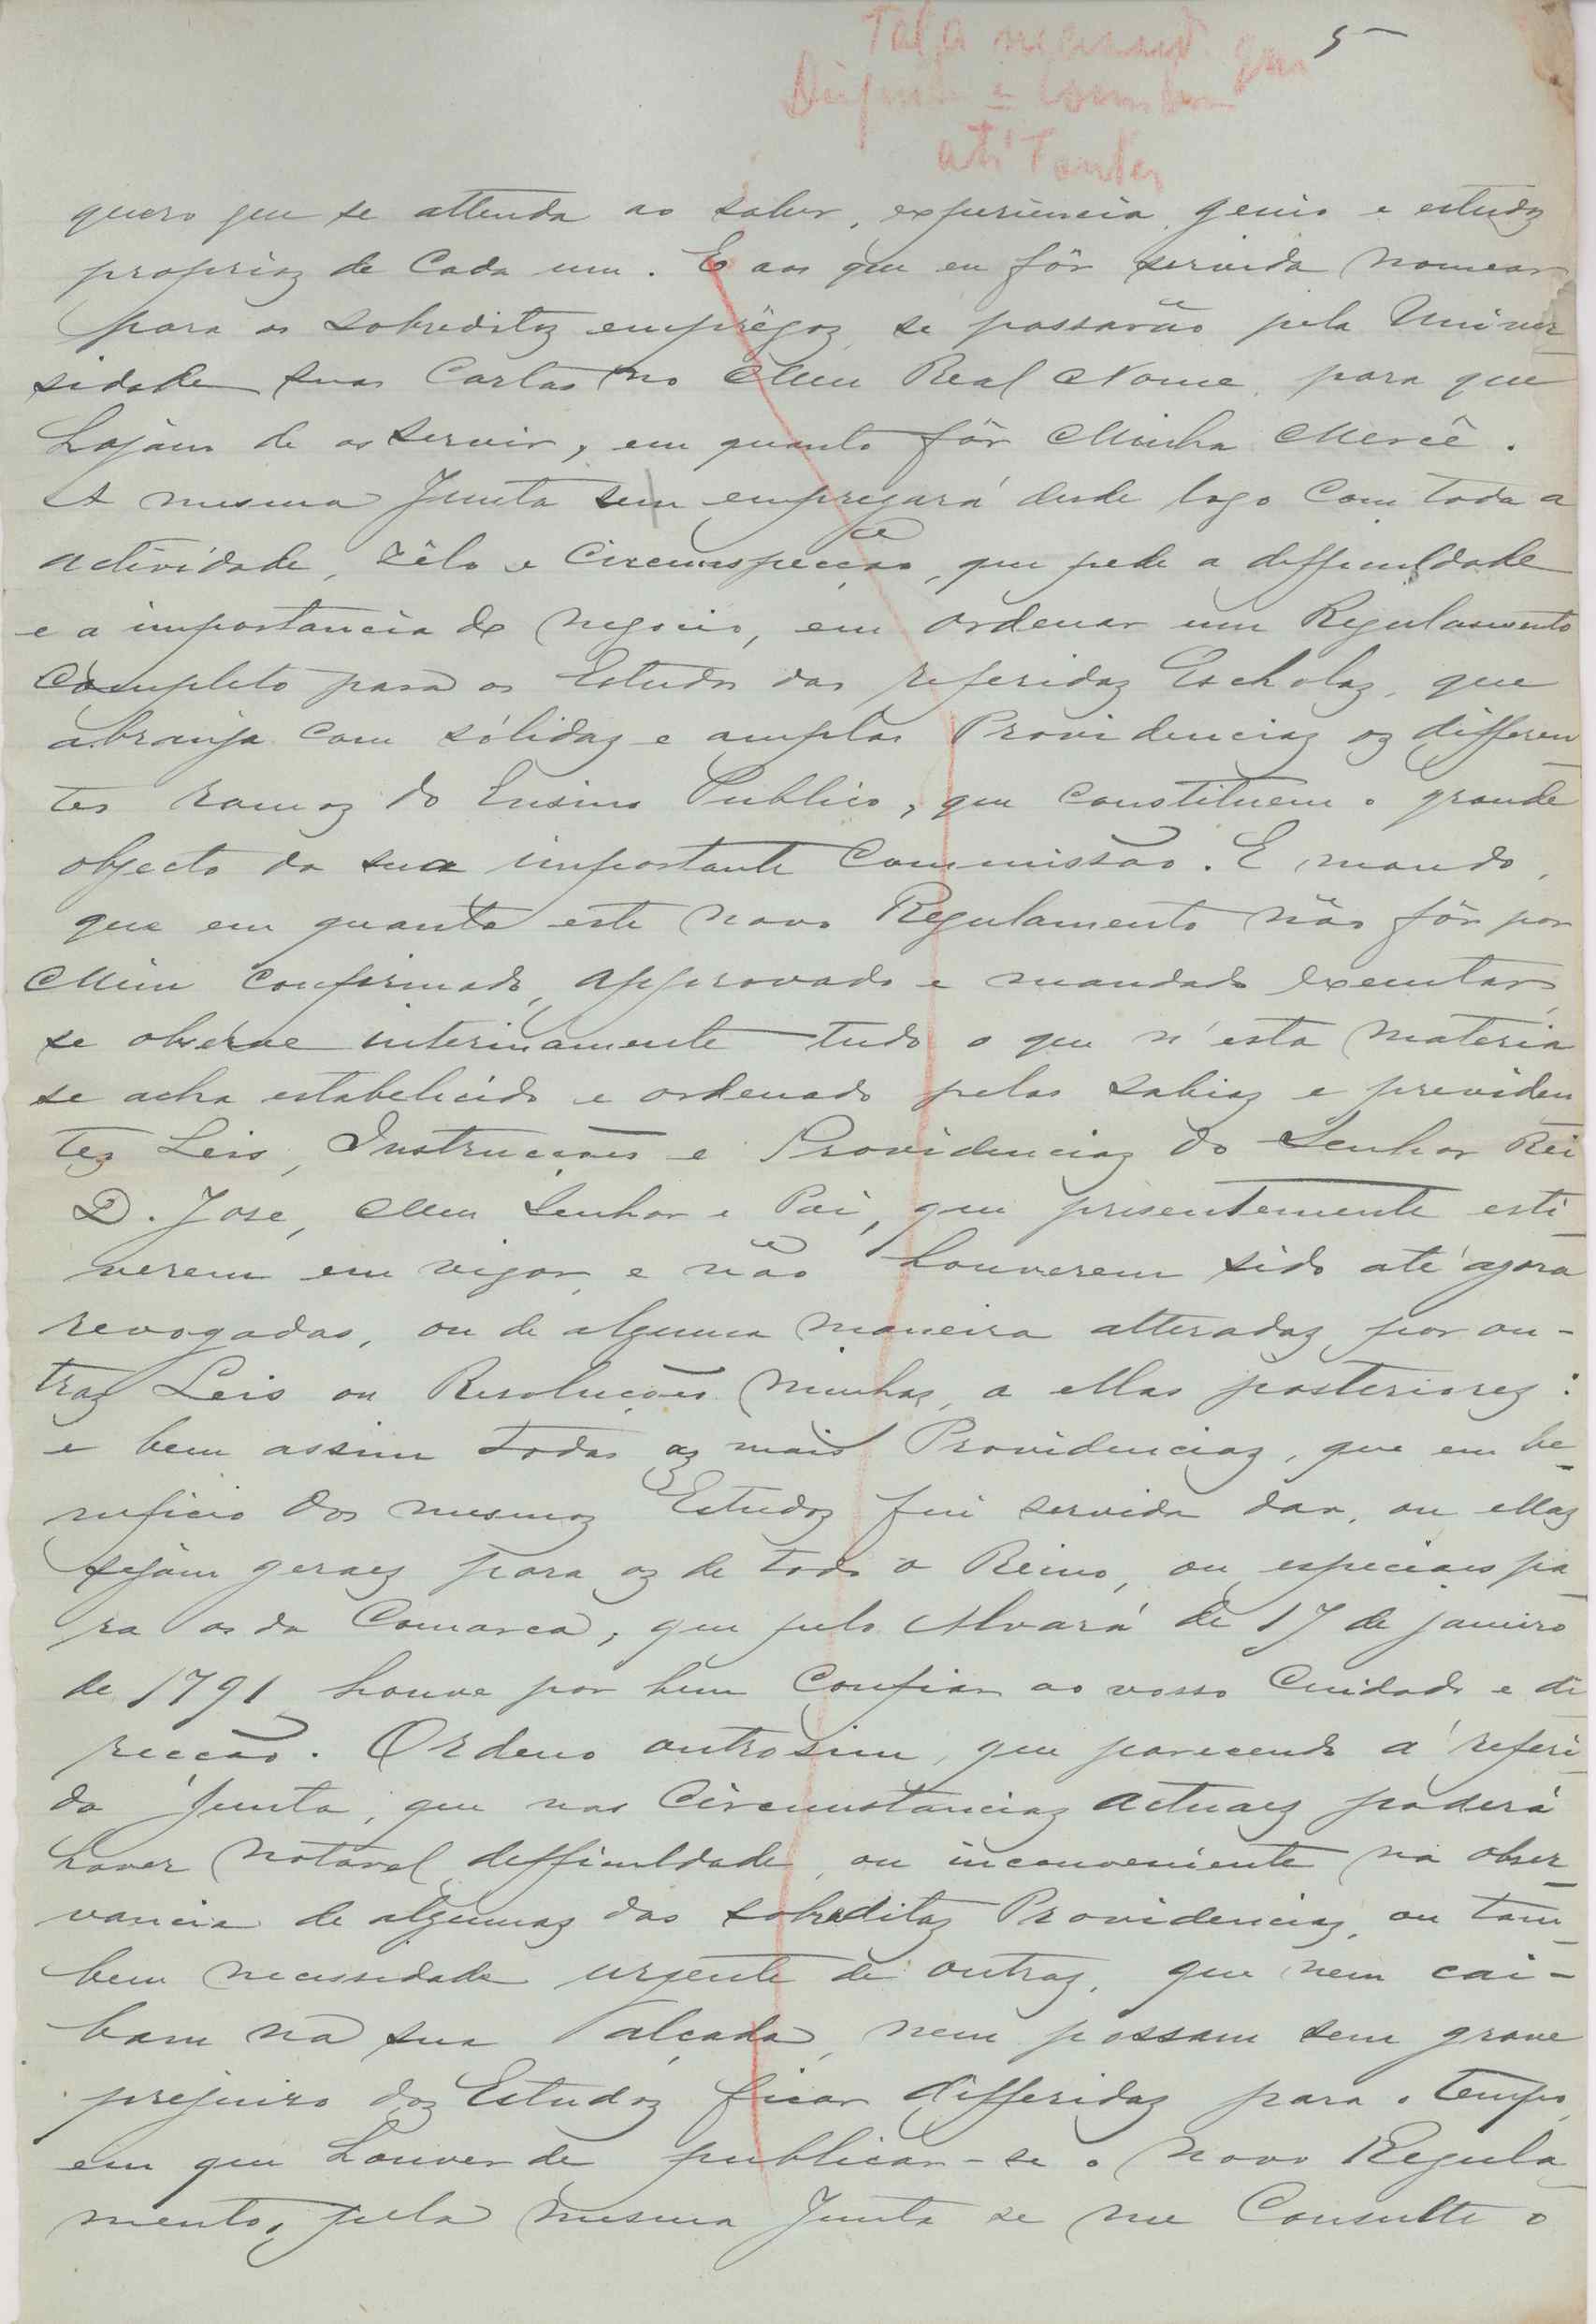 5
até
quero que se attenda ao saber, experiencia, genio e estudoz
proprioz de Cada um. E aos que eu fôr servida nomear
para os sobreditoz emprêgoz, se passarão pela Univer_
sidade suas Cartas no Meu Real Nome, para que
hajam de os servir, em quanto fôr Minha Mercê.
A mesma Junta sem empregará desde logo Com toda a
actividade, zêlo e Circumspecção, que pede a difficuldade
e a importancia do negocio, em ordenar um Regulamento
Completo para os Estudos das referidaz Escholaz, que
abranja com sólidaz e amplas Providenciaz oz differen_
tes ramoz do Ensino Publico, que Constituem o grande
objecto da sua importante Commissão. E mando,
que em quanto este novo Regulamento não fôr por
Mim confirmado, approvado e mandado executar,
se observe interinamente tudo o que n'esta materia
se acha estabelecido e ordenado pelas sabiaz e previden_
tez Leis, Instrucções e Providenciaz do Senhor Rei
D. José, Meu Senhor e Pai, que presentemente esti_
verem em vigor, e não houverem sido até agora
revogadas, ou de alguma maneira alteradaz por ou-
traz Leis ou Resoluções minhaz, a ellas posteriorez:
e bem assim todas az mais Providenciaz, que em be_
neficio dos mesmoz Estudoz fui servida dar, ou ellaz
sejam geraez para oz de todo o Reino, ou especiaes pa_
ra os da Comarca, que pelo Alvará de 17 de janeiro
de 1791 houve por bem Confiar ao vosso Cuidado e di_
recção. Ordeno outrosim, que parecendo á referi_
da Junta, que nas Circumstanciaz actuaez poderá
haver notavel difficuldade, ou inconveniente na obser_
vancia de algumaz das sobreditaz Providenciaz, ou tam_
bem necessidade urgente de outraz, que nem cai-
bam na sua alçada, nem possam sem grave
prejuizo doz Estudoz ficar differidaz para o tempo,
em que houver de publicar-se o novo Regula_
mento, pela mesma Junta se me Consulte o